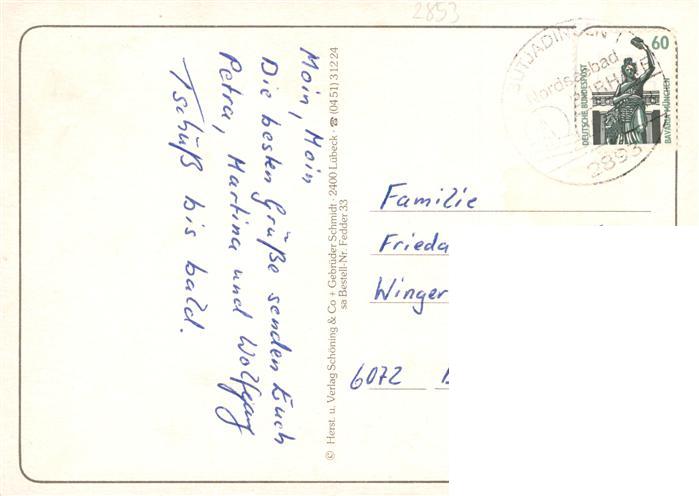 2853
Moin, Moin
Die besten Grüße senden Euch
Petra, Martina und Wolfgang
Tschüß bis bald.
© Herst. u. Verlag Schöning & Co + Gebrüder Schmidt · 2400 Lübeck · ☎ (0451) 31224
sa Bestell-Nr. Fedder 33
BUTJADINGEN
Nordseebad
2893
60
DEUTSCHE BUNDESPOST
BAVARIA MÜNCHEN
Familie
Frieda
Winger
6072